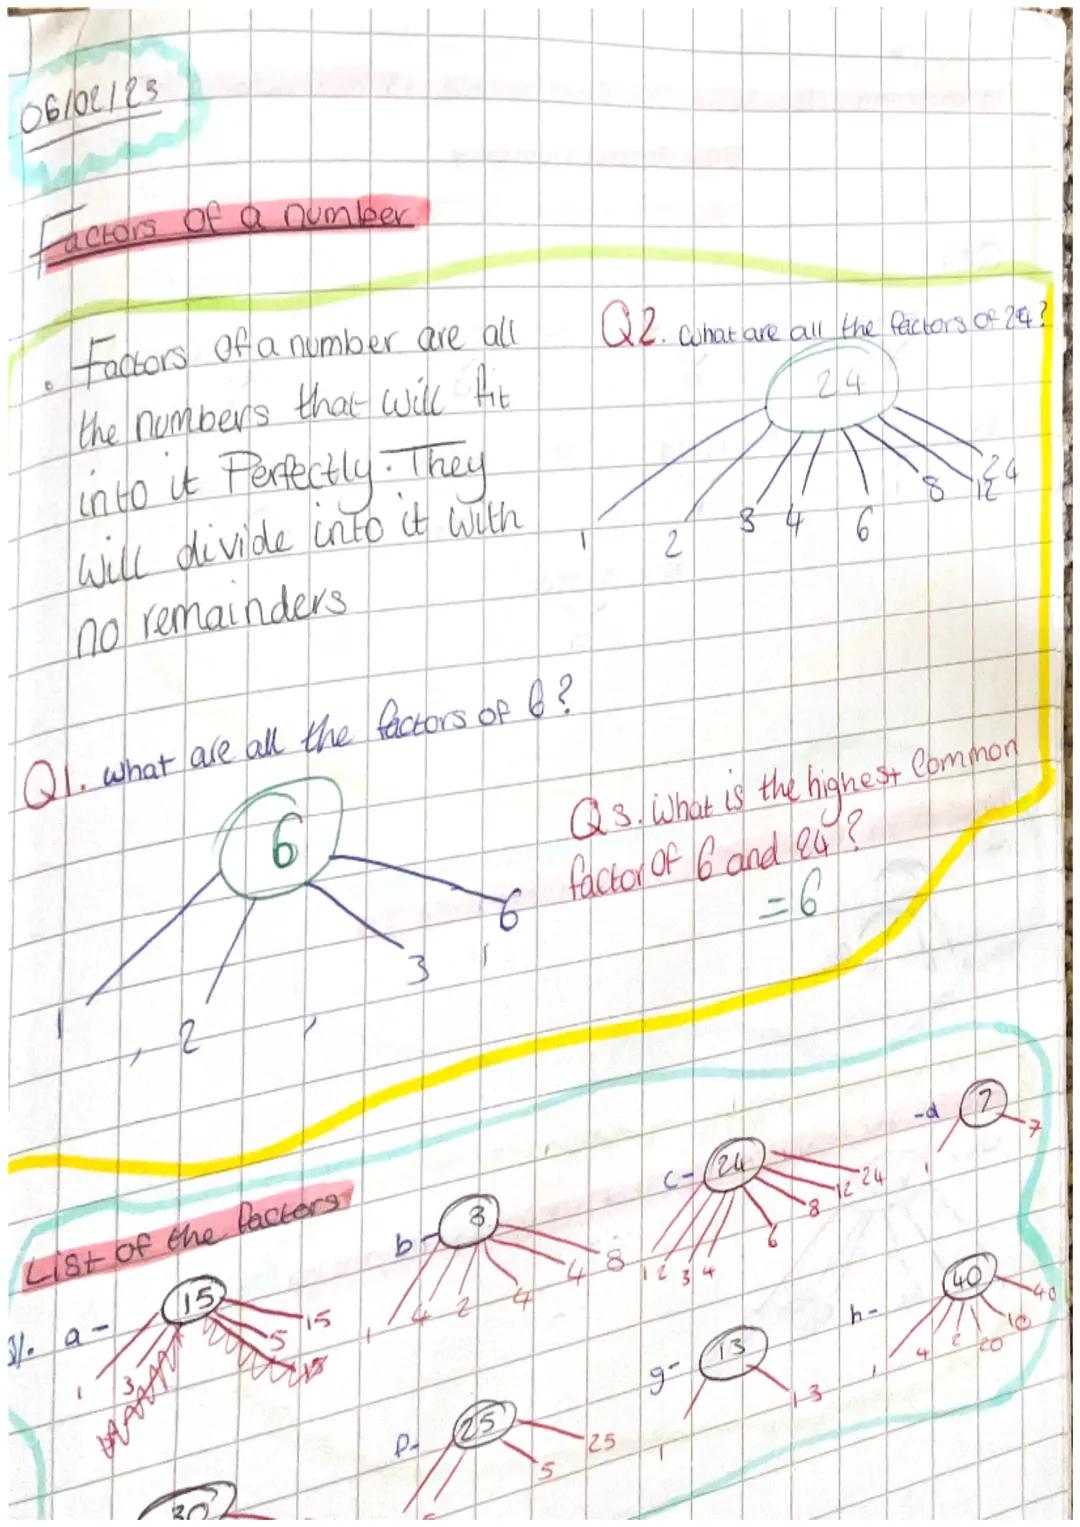 06/02/23
Factors of a number
• Factors of a number are all
the numbers that will fit
into it Perfectly. They
will divide into it with
no remainders
Q2. What are all the factors of 24?
24
1 2 3 4 6 8 12 24
Q1. What are all the factors of 6?
6
1, 2, 3, 6
Q3. What is the highest Common
factor of 6 and 24?
= 6
List of the factors
a-
15
1 3 5 15
b-
8
1 4 2 4 4 8
c-
24
1 2 3 4 6 8 12 24
-d
7
1 7
f-
25
5 25
g-
13
1 13
h-
40
1 4 2 20 10 40
30